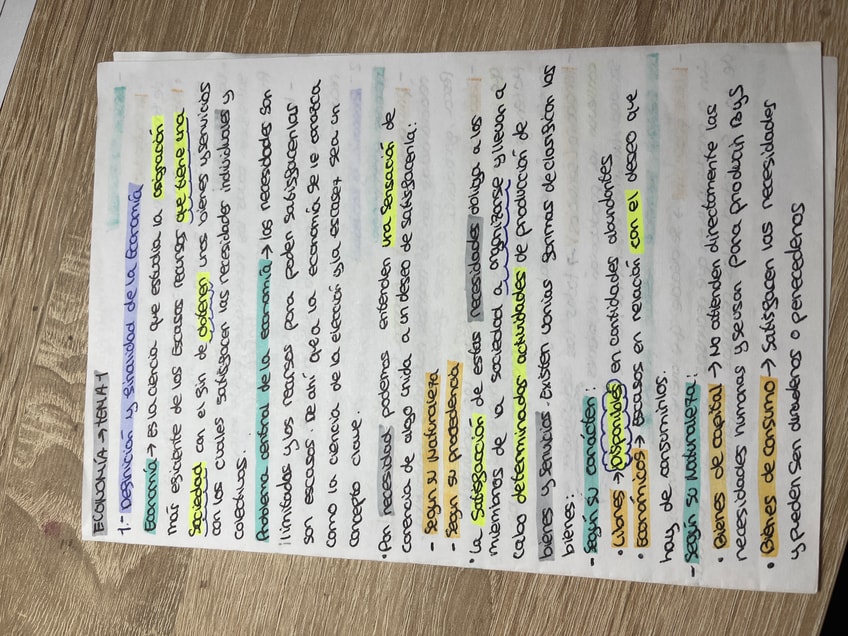 ECONOMÍA → TEMA 1
1.- Definición y finalidad de la Economía
Economía → Es la ciencia que estudia la asignación
más eficiente de los escasos recursos que tiene una
Sociedad con el fin de obtener unos bienes y servicios
con los cuales satisfacer las necesidades individuales y
colectivas.
Problema central de la economía → las necesidades son
ilimitadas y los recursos para poden satisfacerlas
son escasos. De ahí que a la economía se le conozca
como la ciencia de la elección y la escasez sea un
concepto clave.
• Por necesidad podemos entender una sensación de
carencia de algo unida a un deseo de satisfacerla:
- Según su Naturaleza
- Según su procedencia
• La Satisfacción de estas necesidades obliga a los
miembros de la sociedad a organizarse y llevar a
cabo determinados actividades de producción de
bienes y servicios. Existen varias formas de clasificar los
bienes:
- Según su carácter:
• Libres → Disponibles en cantidades abundantes
• Económicos → Escasos en relación con el deseo que
hay de consumirlos.
- Según su Naturaleza:
• Bienes de capital → No atienden directamente las
necesidades humanas y se usan para producir B y S
• Bienes de consumo → Satisfacen las necesidades
y pueden ser duraderos o perecederos